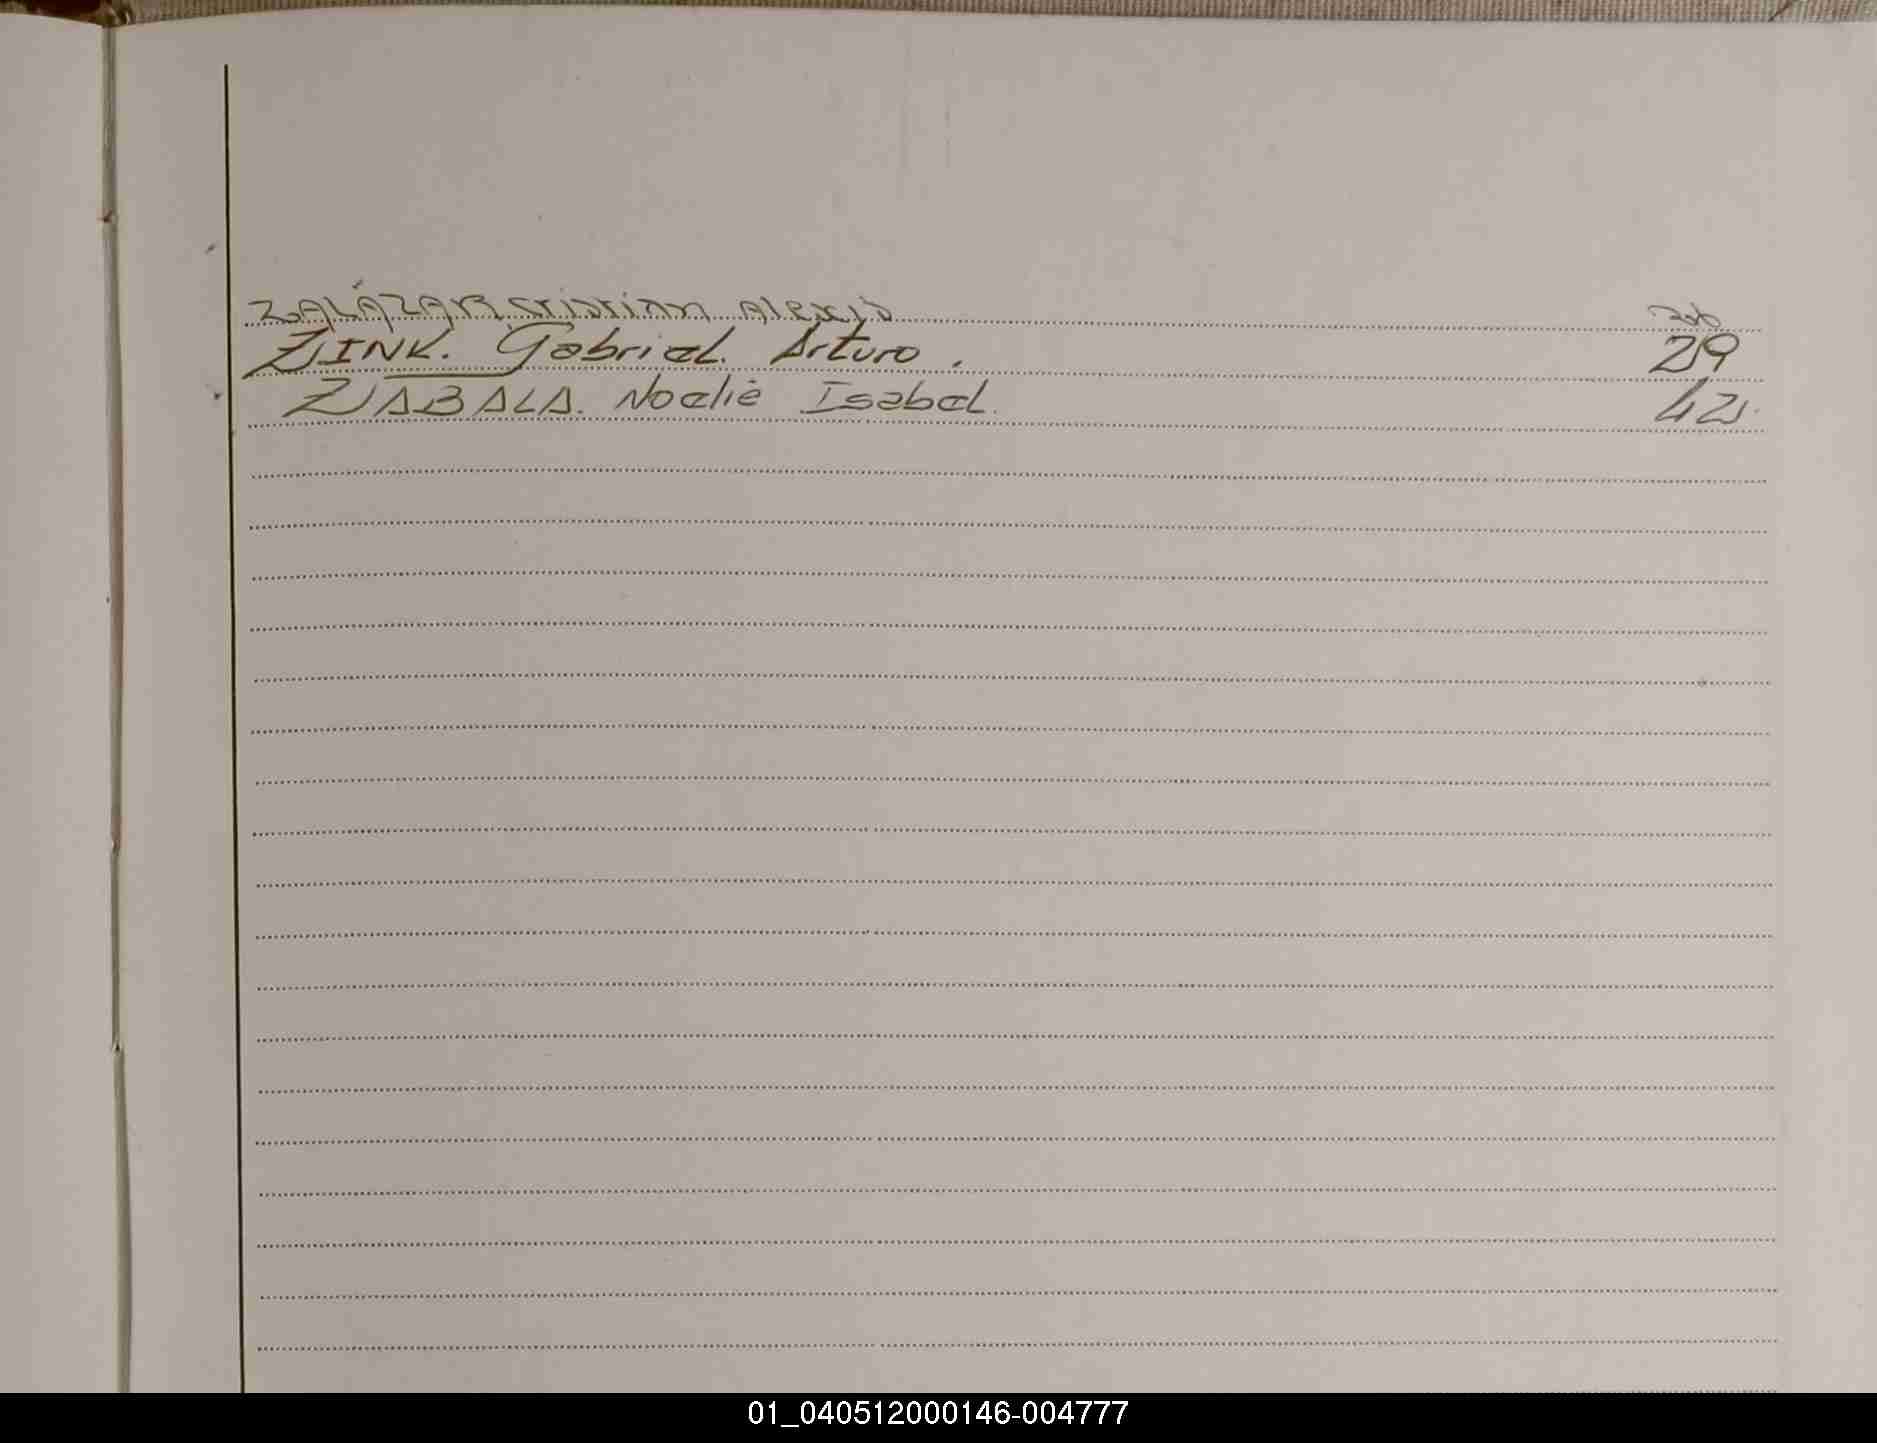 ZALAZAR Cristian Alexis 26
ZINK. Gabriel. Arturo. 29
ZABALA. Noelia Isabel. 42
01_040512000146-004777